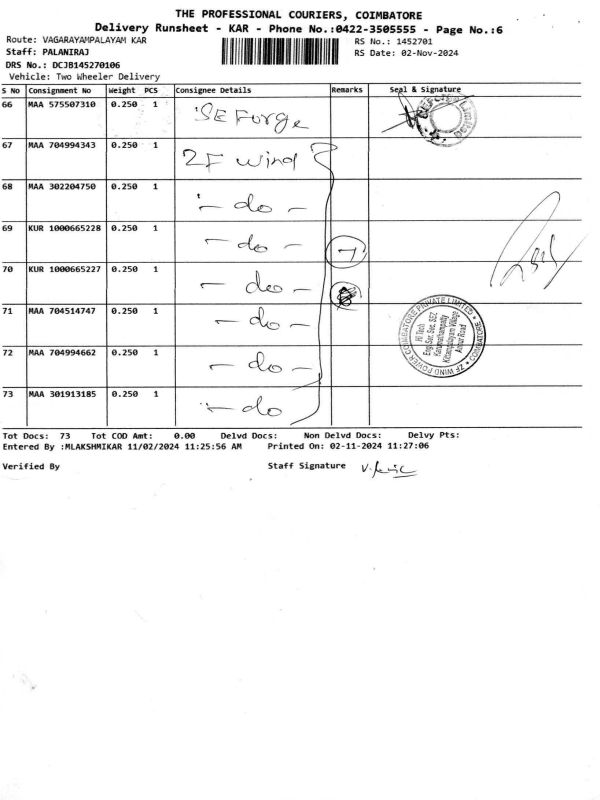 THE PROFESSIONAL COURIERS, COIMBATORE
Delivery Runsheet - KAR - Phone No.:0422-3505555 - Page No.:6
Route: VAGARAYAMPALAYAM KAR RS No.: 1452701
Staff: PALANIRAJ RS Date: 02-Nov-2024
DRS No.: DCJB145270106
Vehicle: Two Wheeler Delivery
S No Consignment No Weight PCS Consignee Details Remarks Seal & Signature
66 MAA 575507310 0.250 1 SE Forge
67 MAA 704994343 0.250 1 ZF wind
68 MAA 302204750 0.250 1 - do -
69 KUR 1000665228 0.250 1 - do - 7
70 KUR 1000665227 0.250 1 - do -
71 MAA 704514747 0.250 1 - do -
72 MAA 704994662 0.250 1 - do -
73 MAA 301913185 0.250 1 - do
ZF WIND POWER COIMBATORE PRIVATE LIMITED * COIMBATORE *
Hi Tech
Engg Sec. SEZ
Karumathampatty
Kittampalayam Village
Annur Road
Tot Docs: 73 Tot COD Amt: 0.00 Delvd Docs: Non Delvd Docs: Delvy Pts:
Entered By :MLAKSHMIKAR 11/02/2024 11:25:56 AM Printed On: 02-11-2024 11:27:06
Verified By Staff Signature